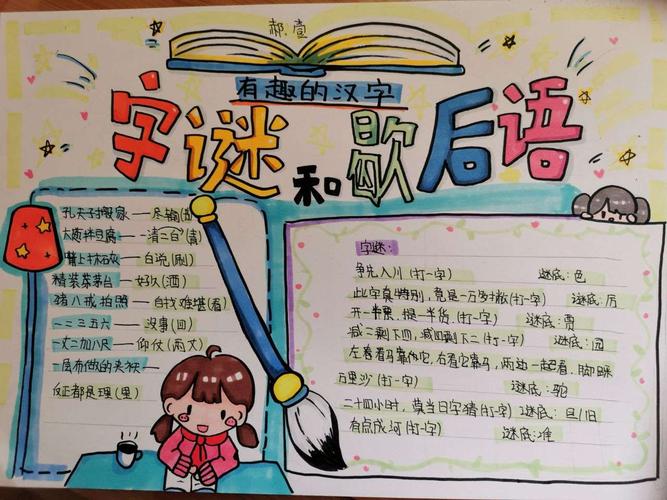 郝.壹
有趣的汉字
字谜和歇后语
孔夫子搬家——尽输
大葱拌豆腐——清二白(青)
嘴上抹石灰——白说(刷)
精装茅台——好久(酒)
猪八戒拍照——自找难堪(看)
一二三五六——没事(回)
一丈二加八尺——仰仗(两丈)
一层布做的夹袄—
反正都是理(里)
字谜:
争先入川(打一字) 谜底:色
此字真特别,竟是一万多(打一字) 谜底:厉
开一苹果,提一半货.(打一字) 谜底:贾
减二剩下四,减四剩下二(打一字) 谜底:园
左看马靠它,右看它靠马,两边一起看,脚踩
万里沙(打一字) 谜底:驼
二十四小时,莫当日字猜(打一字) 谜底:旦/旧
有点成河(打一字) 谜底:准